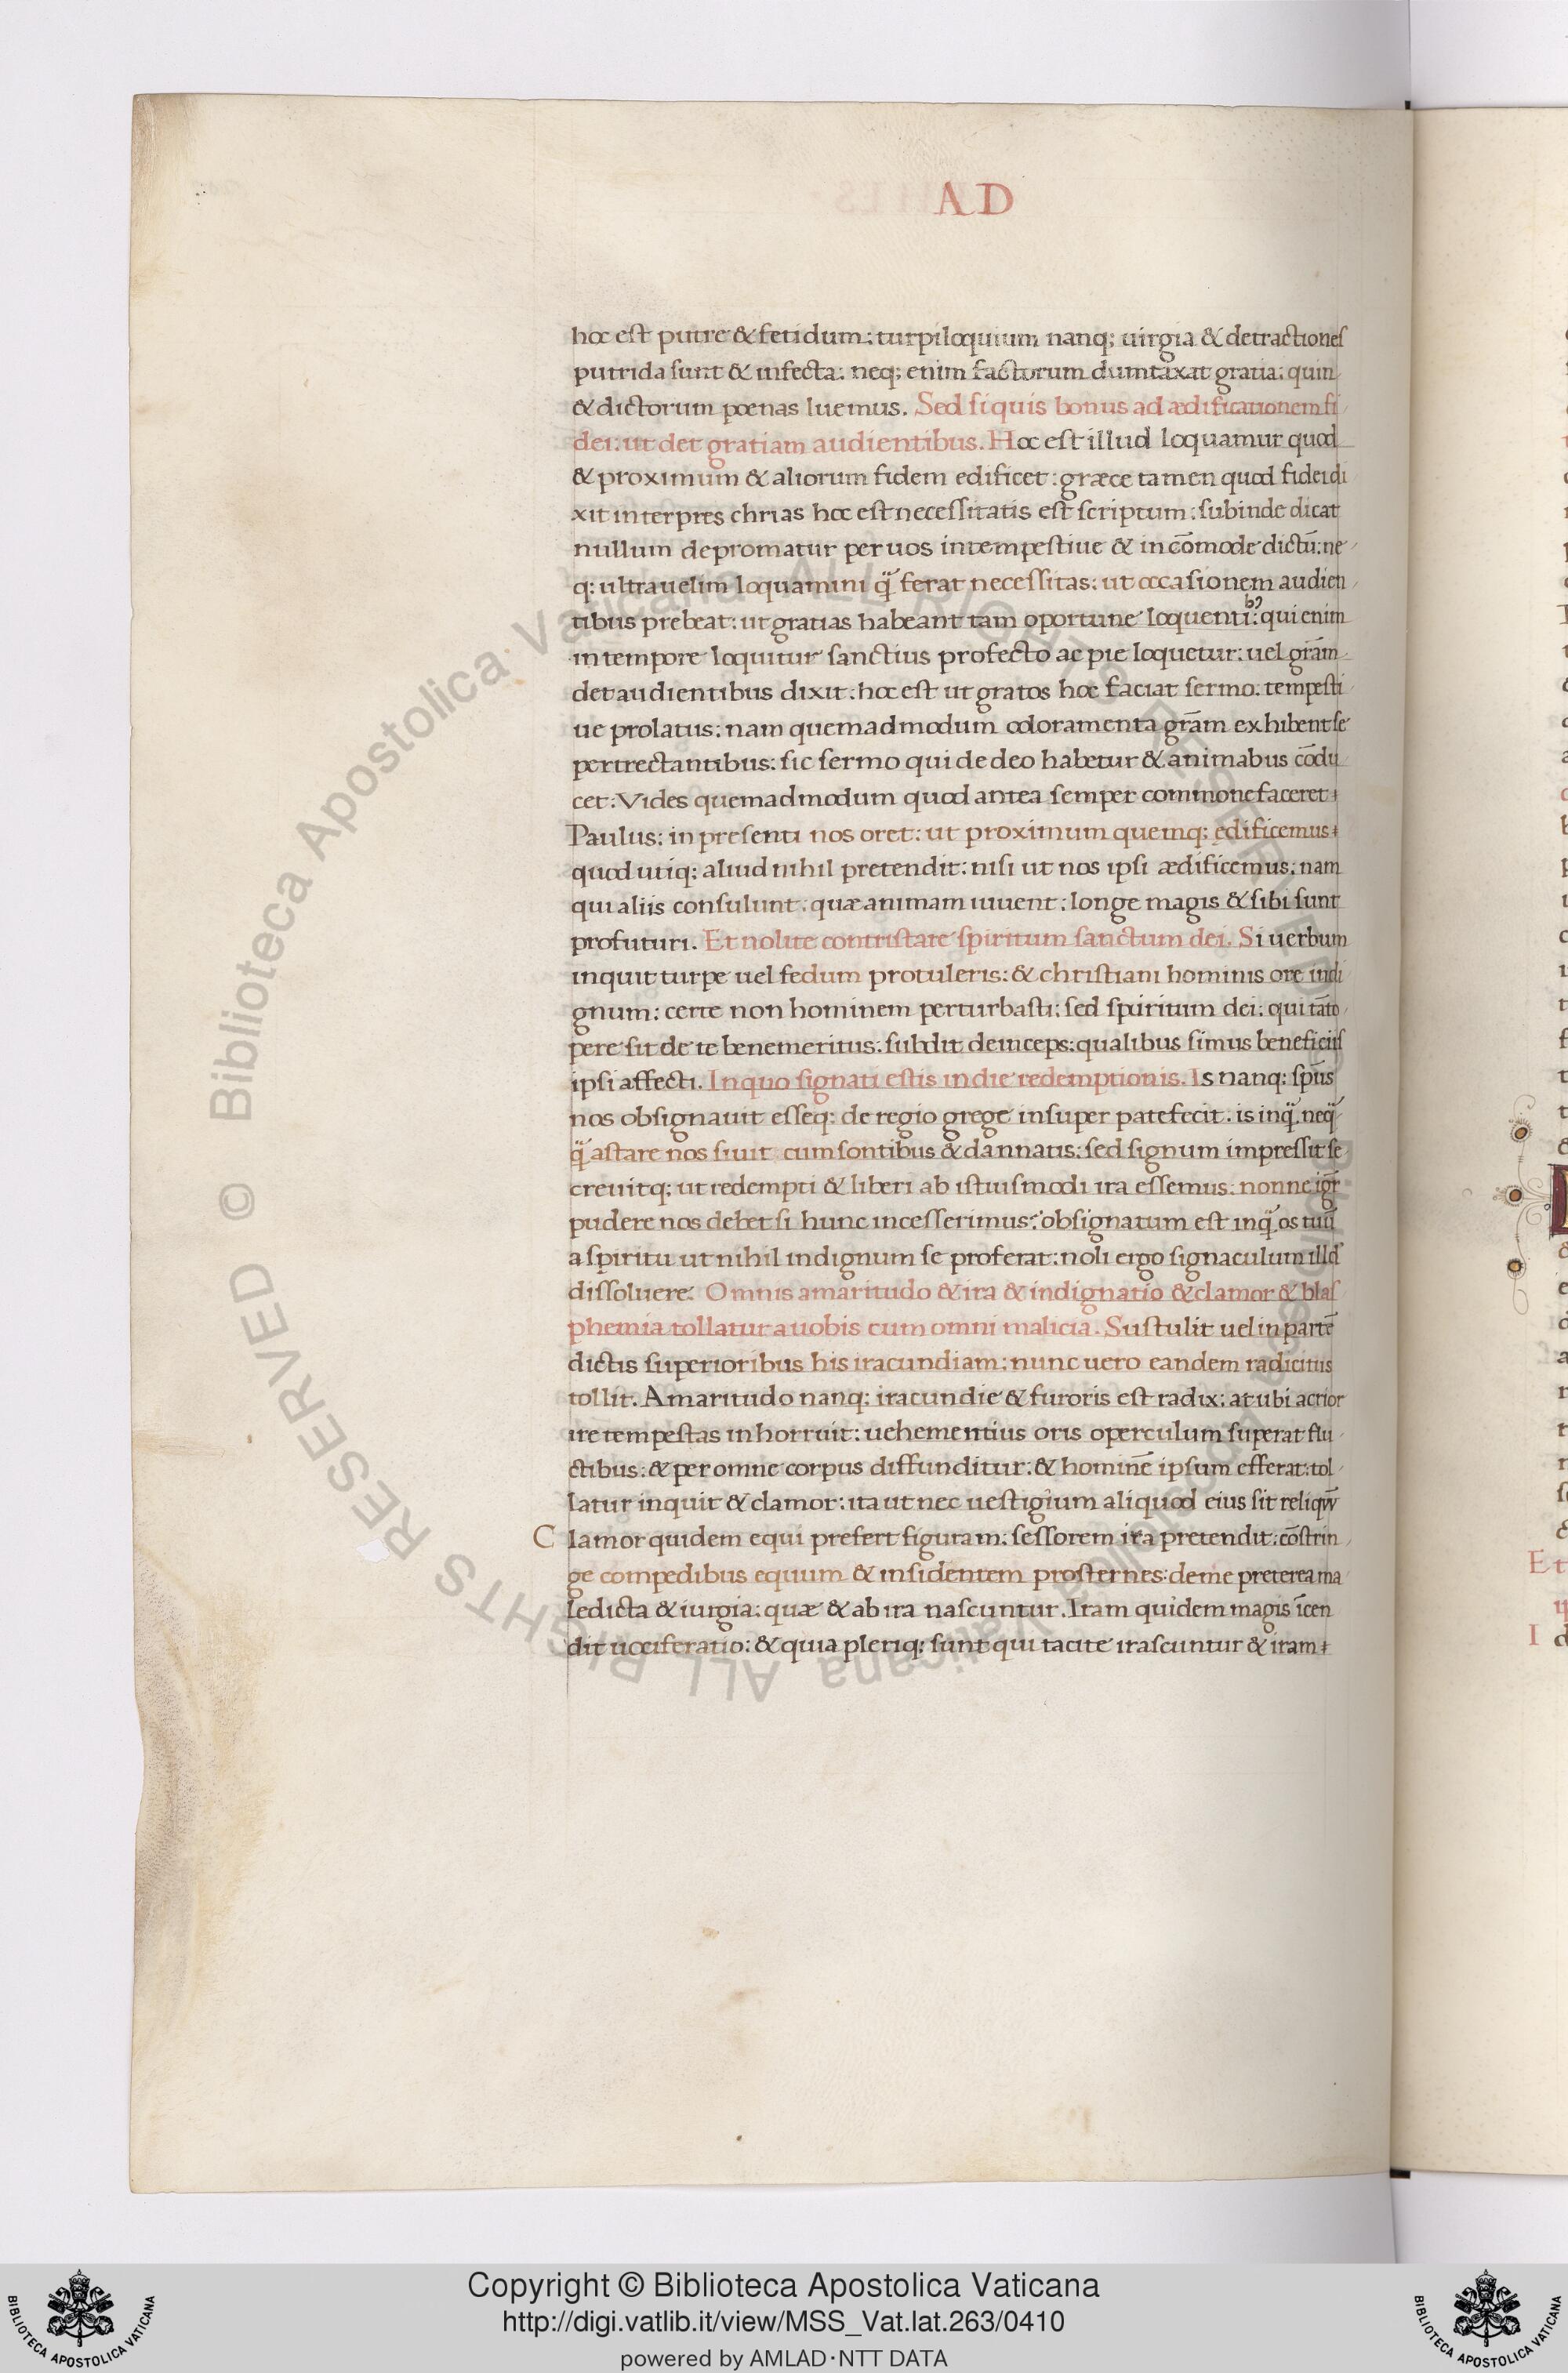 AD
hoc est putre & fetidum: turpiloquium nanq; uirgia & detractiones
putrida sunt & infecta: neq; enim factorum dumtaxat gratia: quin
& dictorum poenas luemus. Sed si quis bonus ad ædificationem fi
dei: ut det gratiam audientibus. Hoc est illud loquamur quod
& proximum & aliorum fidem edificet: græce tamen quod fidei di
xit interpres chrias hoc est necessitatis est scriptum: subinde dicat
nullum depromatur per uos intempestiue & incōmode dictū: ne
q: ultra uelim loquamini q̃ ferat necessitas: ut occasionem audien
tibus prebeat: ut gratias habeant tam oportune loquentibꝰ: qui enim
in tempore loquitur sanctius profecto ac pie loquetur: uel grām
det audientibus dixit: hoc est ut gratos hoc faciat sermo: tempesti
ue prolatus: nam quemadmodum odoramenta grām exhibent se
pertrectantibus: sic sermo qui de deo habetur & animabus cōdu
cet: Vides quemadmodum quod antea semper commonefaceret
Paulus: in presenti nos oret: ut proximum quemq; ędificemus
quod utiq; aliud nihil pretendit: nisi ut nos ipsi ædificemus: nam
qui aliis consulunt: quæ animam iuuent: longe magis & sibi sunt
profuturi. Et nolite contristare spiritum sanctum dei. Si uerbum
inquit turpe uel fedum protuleris: & christiani hominis ore indi
gnum: certe non hominem perturbasti: sed spiritum dei: qui tāto
pere sit de te benemeritus: subdit deinceps: qualibus simus beneficiis
ipsi affecti. In quo signati estis in die redemptionis. Is nanq: spūs
nos obsignauit esseq: de regio grege insuper patefecit. is inq̃. neq̃
q̃ astare nos siuit cum sontibus & dannatis: sed signum impressit se
creuitq; ut redempti & liberi ab istiusmodi ira essemus: nonne igr̄
pudere nos debet si hunc incesserimus? obsignatum est inq̃ os tuū
a spiritu ut nihil indignum se proferat: noli ergo signaculum illd
dissoluere. Omnis amaritudo & ira & indignatio & clamor & blas
phemia tollatur a uobis cum omni malicia. Sustulit uel in partē
dictis superioribus his iracundiam: nunc uero eandem radicitus
tollit. Amaritudo nanq: iracundie & furoris est radix: at ubi acrior
ire tempestas inhorruit: uehementius oris operculum superat flu
ctibus: & per omne corpus diffunditur: & hominē ipsum efferat: tol
latur inquit & clamor: ita ut nec uestigium aliquod eius sit reliqūū
Clamor quidem equi prefert figuram: sessorem ira pretendit: cōstrin
ge compedibus equum & insidentem prosternes: deme preterea ma
ledicta & iurgia: quæ & ab ira nascuntur. Iram quidem magis īcen
dit uociferatio: & quia pleriq; sunt qui tacite irascuntur & iram
Copyright © Biblioteca Apostolica Vaticana
http://digi.vatlib.it/view/MSS_Vat.lat.263/0410
powered by AMLAD·NTT DATA